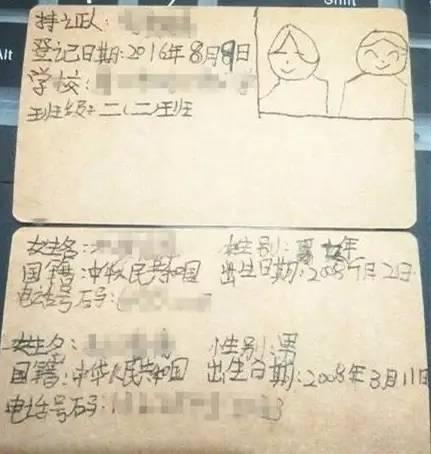 持证人:
登记日期:2016年8月9日
学校:
班级:二(二)班
姓名: 性别:女
国籍:中华人民共和国 出生日期:2008年7月2日
电话号码:
姓名: 性别:男
国籍:中华人民共和国 出生日期:2008年3月11日
电话号码: 3
Alt
Shift